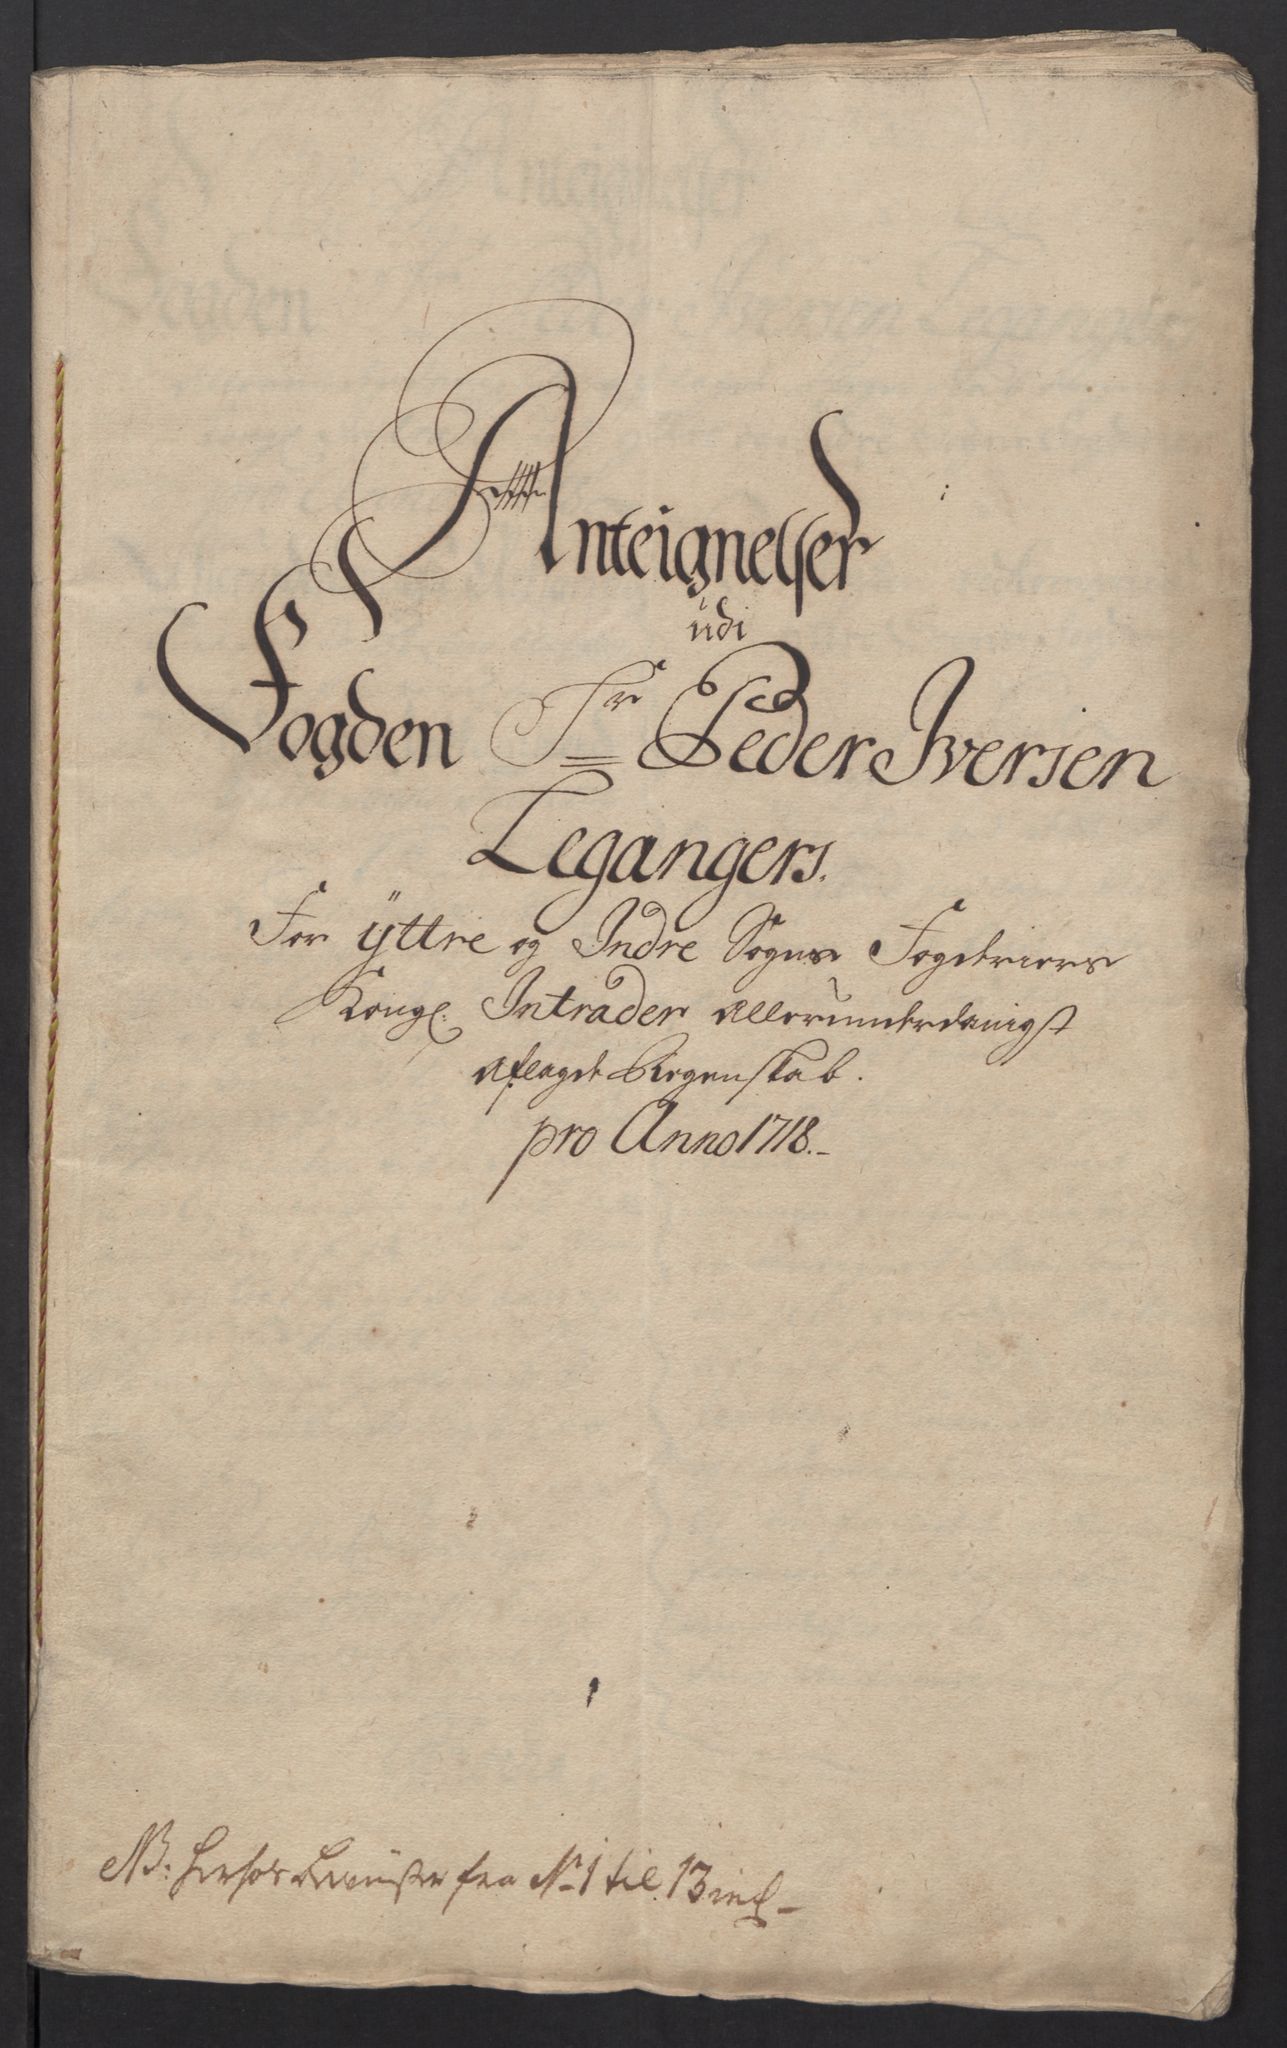 Anteignelser
udi
Fogden Sr Peder Iversen
Legangers.
For ÿttre og Indre Sogns Fogderiers
Kongl: Intrader Allerunderdanigst
aflagde Regenskab.
pro Anno 1718.-
NB: herhos beviister fra No 1 til 13 incl-